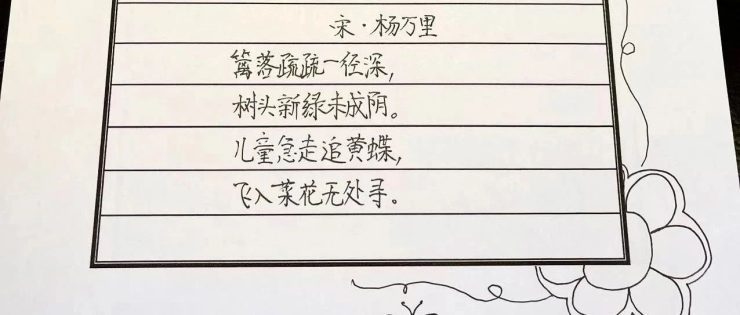 宋·杨万里
篱落疏疏一径深,
树头新绿未成阴。
儿童急走追黄蝶,
飞入菜花无处寻。